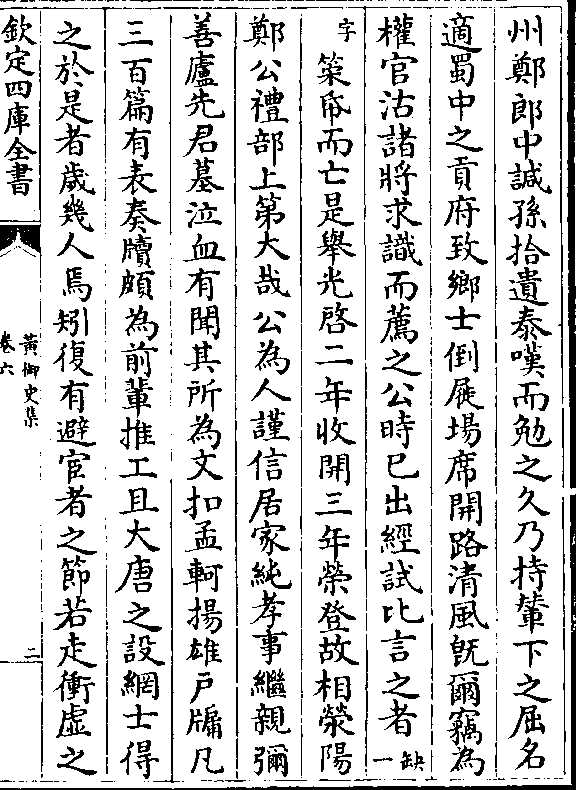 州鄭郎中諴孫拾遺泰嘆而勉之久乃持輦下之屈名
適蜀中之貢府致鄉士倒屣場席開路清風旣爾竊為
權官沽諸將求識而薦之公時已出經試比言之者缺一
字築𠂔而亡是舉光啓二年收開三年榮登故相滎陽
鄭公禮部上第大哉公為人謹信居家純孝事繼親彌
善廬先君墓泣血有聞其所為文扣孟軻揚雄戸牖凡
三百篇有表奏牘頗為前輩推工且大唐之設網士得
之於是者歲幾人焉矧復有避宦者之節若走衝虚之
欽定四庫全書
黃御史集
卷六
二